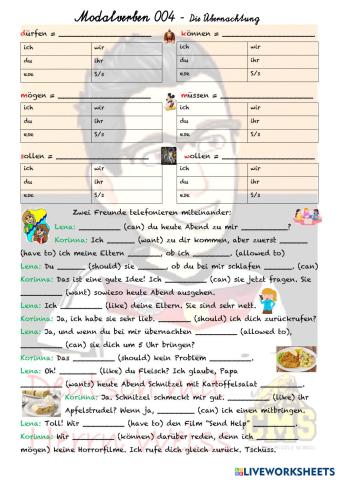 Modalverben 004 - Die Übernachtung
dürfen = ____________________ können = ____________________
ich wir ich wir
du ihr du ihr
e,s,e S/s e,s,e S/s
mögen = ____________________ müssen = ____________________
ich wir ich wir
du ihr du ihr
e,s,e S/s e,s,e S/s
sollen = ____________________ wollen = ____________________
ich wir ich wir
du ihr du ihr
e,s,e S/s e,s,e S/s
Zwei Freunde telefonieren miteinander:
Lena: ________ (can) du heute Abend zu mir ________?
Korinna: Ich ______ (want) zu dir kommen, aber zuerst ______
(have to) ich meine Eltern ________, ob ich ________. (allowed to)
Lena: Du ________ (should) sie ________, ob du bei mir schlafen ________. (can)
Korinna: Das ist eine gute Idee! Ich ________ (can) sie jetzt fragen. Sie
________ (want) sowieso heute Abend ausgehen.
Lena: Ich ________ (like) deine Eltern. Sie sind sehr nett.
Korinna: Ja, ich habe sie sehr lieb. ________ (should) ich dich zurückrufen?
Lena: Ja, und wenn du bei mir übernachten ________ (allowed to),
________ (can) sie dich um 5 Uhr bringen?
Korinna: Das ________ (should) kein Problem ________.
Lena: Oh! ________ (like) du Fleisch? Ich glaube, Papa
________ (wants) heute Abend Schnitzel mit Kartoffelsalat ________.
Korinna: Ja. Schnitzel schmeckt mir gut. ________ (like) ihr
Apfelstrudel? Wenn ja, ________ (can) ich einen mitbringen.
Lena: Toll! Wir ________ (have to) den Film "Send Help" ________
Korinna: Wir ________ (können) darüber reden, denn ich ________
mögen) keine Horrorfilme. Ich rufe dich gleich zurück, Tschüss.
CMS
Herrn Weiss
LIVEWORKSHEETS